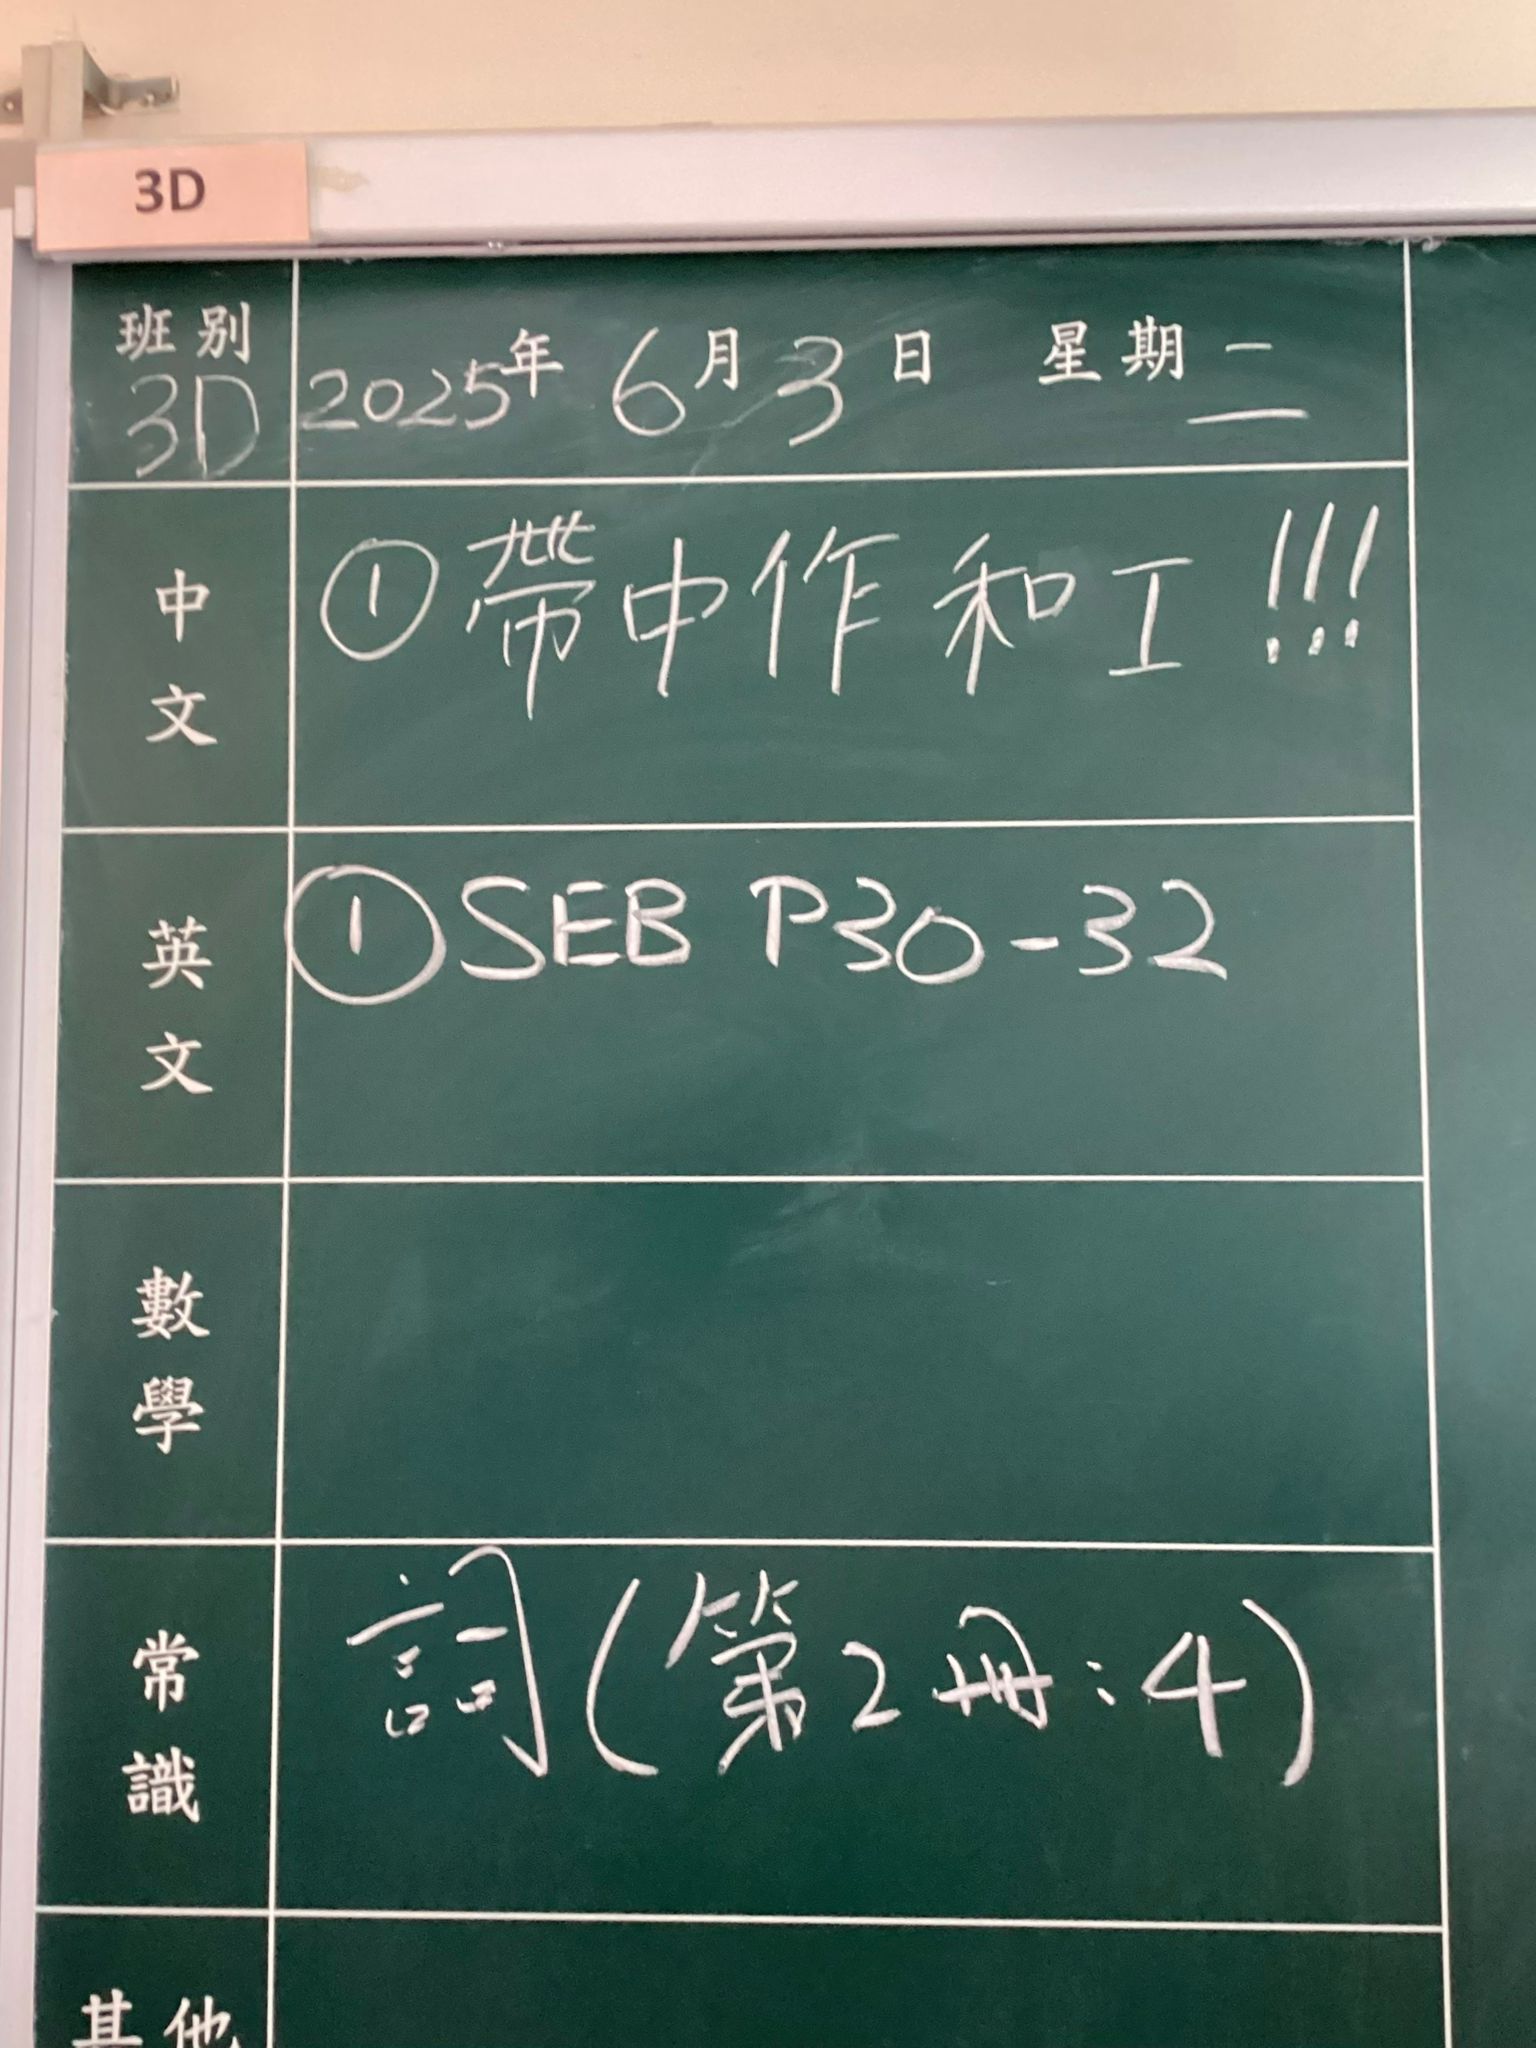 3D
班別 3D
2025年6月3日 星期二
中文
① 帶中作和工!!!
英文
① SEB P30-32
數學
常識
詞(第2冊:4)
其他